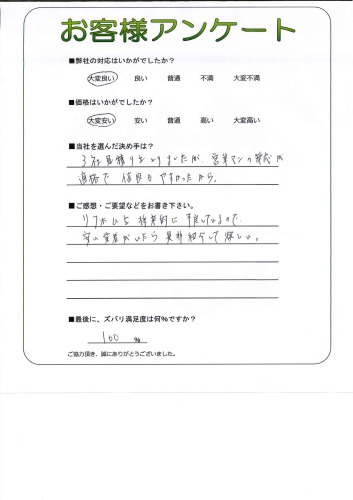 お客様アンケート
■弊社の対応はいかがでしたか？
大変良い 良い 普通 不満 大変不満
■価格はいかがでしたか？
大変安い 安い 普通 高い 大変高い
■当社を選んだ決め手は？
3社見積りをとりましたが、営業マンの対応が
適格で 値段もやすかったから。
■ご感想・ご要望などをお書き下さい。
リフォームを将来的に予定しているので、
安い業者がいたら是非紹介して欲しい。
■最後に、ズバリ満足度は何％ですか？
100 ％
ご協力頂き、誠にありがとうございました。